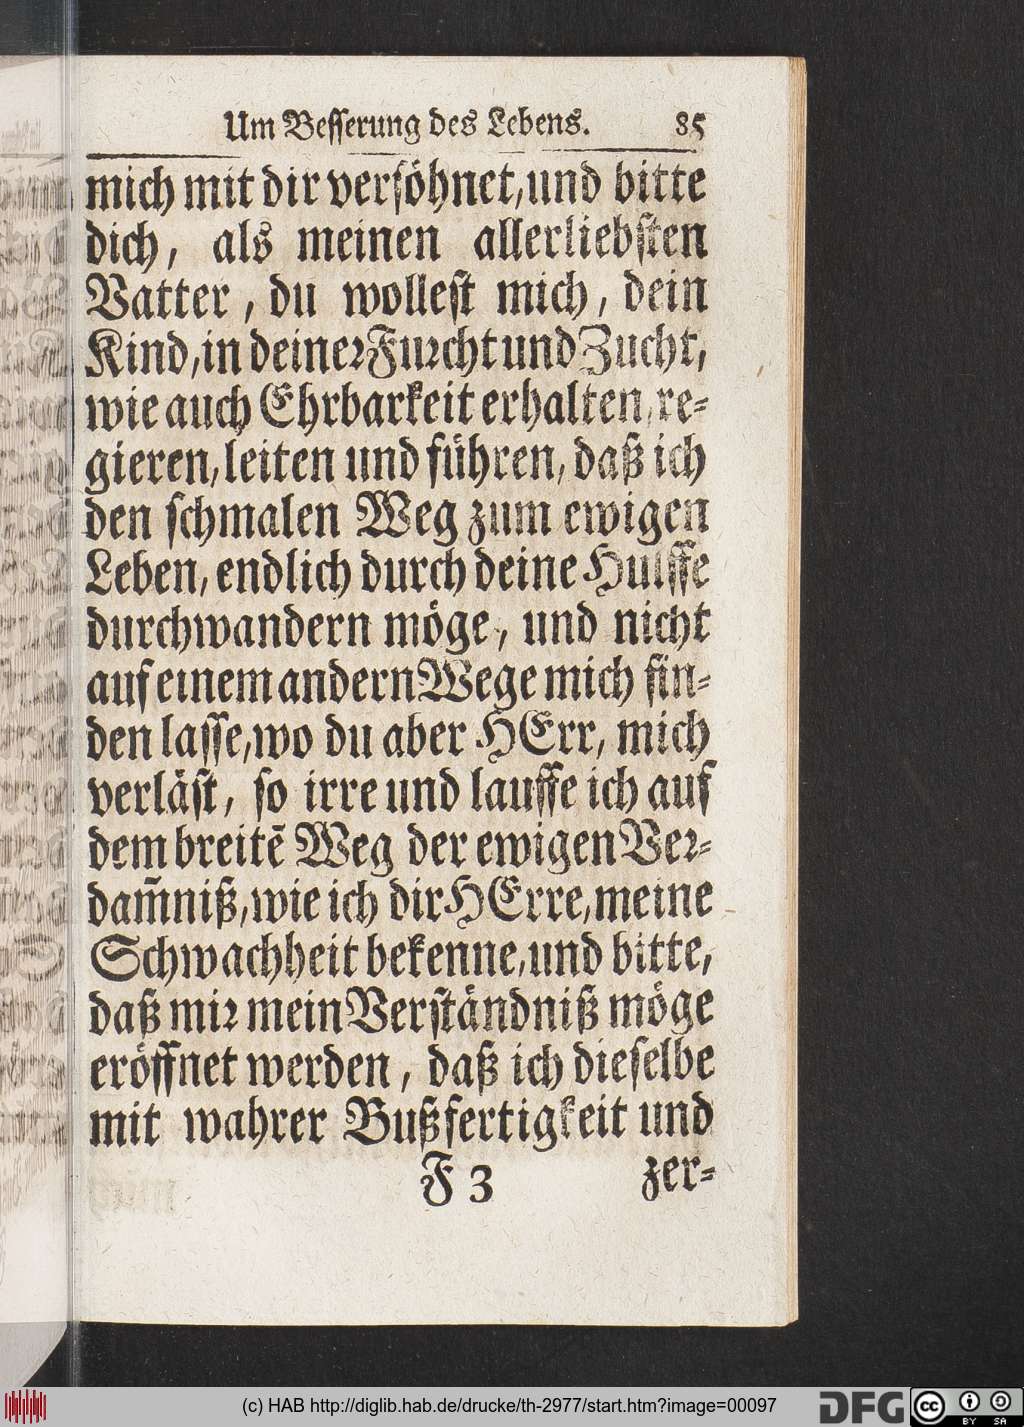 Um Besserung des Lebens. 85
mich mit dir versöhnet, und bitte
dich, als meinen allerliebsten
Vatter, du wollest mich, dein
Kind, in deiner Furcht und Zucht,
wie auch Ehrbarkeit erhalten, re=
gieren, leiten und führen, daß ich
den schmalen Weg zum ewigen
Leben, endlich durch deine Hülffe
durchwandern möge, und nicht
auf einem andern Wege mich fin=
den lasse, wo du aber HErr, mich
verläst, so irre und lauffe ich auf
dem breitē Weg der ewigen Ver=
dam̄niß, wie ich dir HErre, meine
Schwachheit bekenne, und bitte,
daß mir mein Verständniß möge
eröffnet werden, daß ich dieselbe
mit wahrer Bußfertigkeit und
F 3 zer=
(c) HAB http://diglib.hab.de/drucke/th-2977/start.htm?image=00097
DFG
cc BY SA